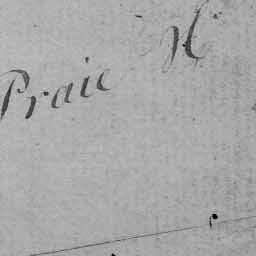 Praic H